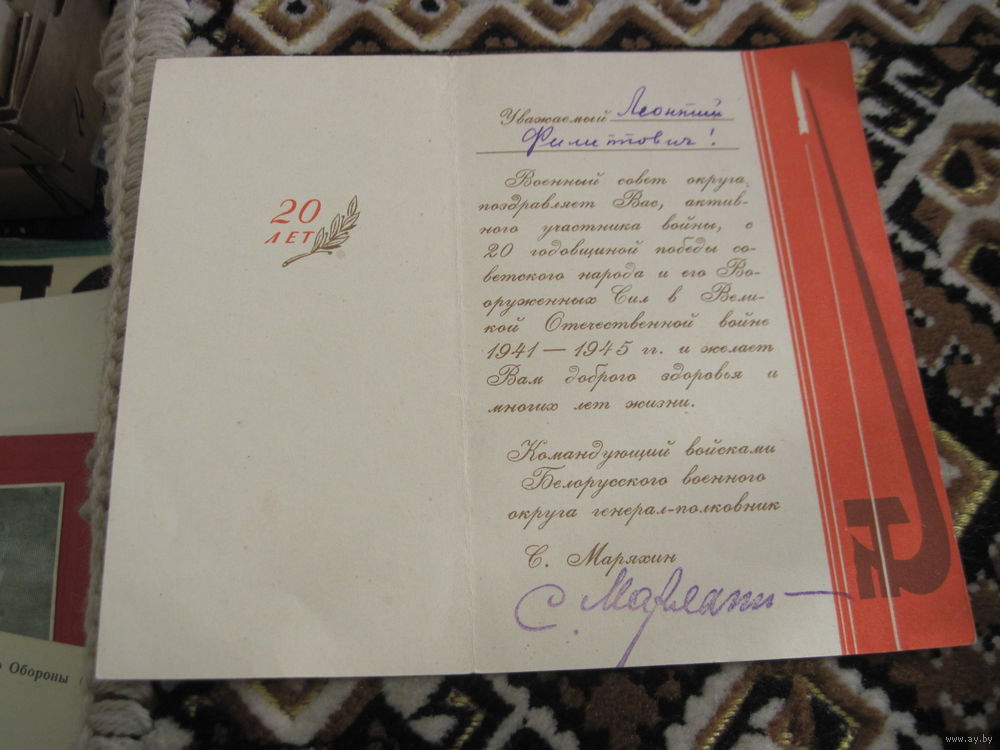 20
ЛЕТ
Уважаемый Леонтий
Филиппович!
Военный совет округа
поздравляет Вас, актив-
ного участника войны, с
20 годовщиной победы со-
ветского народа и его Во-
оруженных Сил в Вели-
кой Отечественной войне
1941 — 1945 гг. и желает
Вам доброго здоровья и
многих лет жизни.
Командующий войсками
Белорусского военного
округа генерал-полковник
С. Маряхин
С. Маряхин
Обороны
www.ay.by